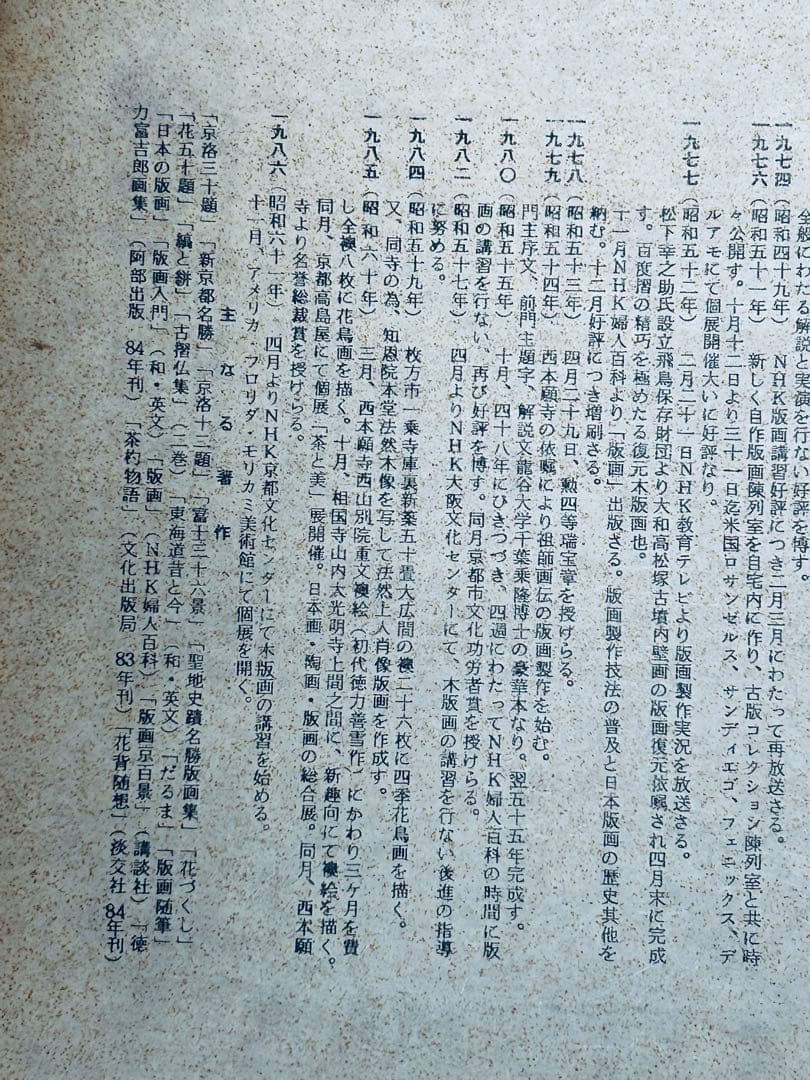 全般にわたる解説と実演を行ない好評を博す。
一九七四（昭和四十九年）　NHK版画講習好評につき二月三月にわたって再放送さる。
一九七六（昭和五十一年）　新しく自作版画陳列室を自宅内に作り、古版コレクション陳列室と共に時
々公開す。十月十二日より三十一日迄米国ロサンゼルス、サンディエゴ、フェニックス、デ
ルアモにて個展開催大いに好評なり。
一九七七（昭和五十二年）　二月二十一日NHK教育テレビより版画製作実況を放送さる。
松下幸之助氏設立飛鳥保存財団より大和高松塚古墳内壁画の版画復元依嘱され四月末に完成
す。百度摺の精巧を極めたる復元木版画也。
十一月NHK婦人百科より「版画」出版さる。版画製作技法の普及と日本版画の歴史其他を
納む。十二月好評につき増刷さる。
一九七八（昭和五十三年）　四月二十九日、勲四等瑞宝章を授けらる。
一九七九（昭和五十四年）　西本願寺の依嘱により祖師画伝の版画製作を始む。
門主序文、前門主題字、解説文龍谷大学千葉乗隆博士の豪華本なり。翌五十五年完成す。
一九八〇（昭和五十五年）　十月、四十八年にひきつづき、四週にわたってNHK婦人百科の時間に版
画の講習を行ない、再び好評を博す。同月京都市文化功労者賞を授けらる。
一九八二（昭和五十七年）　四月よりNHK大阪文化センターにて、木版画の講習を行ない後進の指導
に努める。
一九八四（昭和五十九年）　枚方市一乗寺庫裏新築五十畳大広間の襖二十六枚に四季花鳥画を描く。
又、同寺の為、知恩院本堂法然木像を写して法然上人肖像版画を作成す。
一九八五（昭和六十年）　三月、西本願寺西山別院重文襖絵（初代徳力善雪作）にかわり三ヶ月を費
し全襖八枚に花鳥画を描く。十月、相国寺山内大光明寺上間之間に、新趣向にて襖絵を描く。
同月、京都高島屋にて個展「茶と美」展開催。日本画・陶画・版画の総合展。同月、西本願
寺より名誉総裁賞を授けらる。
一九八六（昭和六十一年）　四月よりNHK京都文化センターにて木版画の講習を始める。
十一月、アメリカ　フロリダ・モリカミ美術館にて個展を開く。
主なる著作
「京洛三十題」「新京都名勝」「京洛十三題」「富士三十六景」「聖地史蹟名勝版画集」「花づくし」
「花五十題」「縞と絣」「古摺仏集」（二巻）「東海道昔と今」（和・英文）「だるま」「版画随筆」
「日本の版画」「版画入門」（和・英文）「版画」（NHK婦人百科）「版画京百景」（講談社）「徳
力富吉郎画集」（阿部出版　84年刊）「茶杓物語」（文化出版局　83年刊）「花背随想」（淡交社　84年刊）